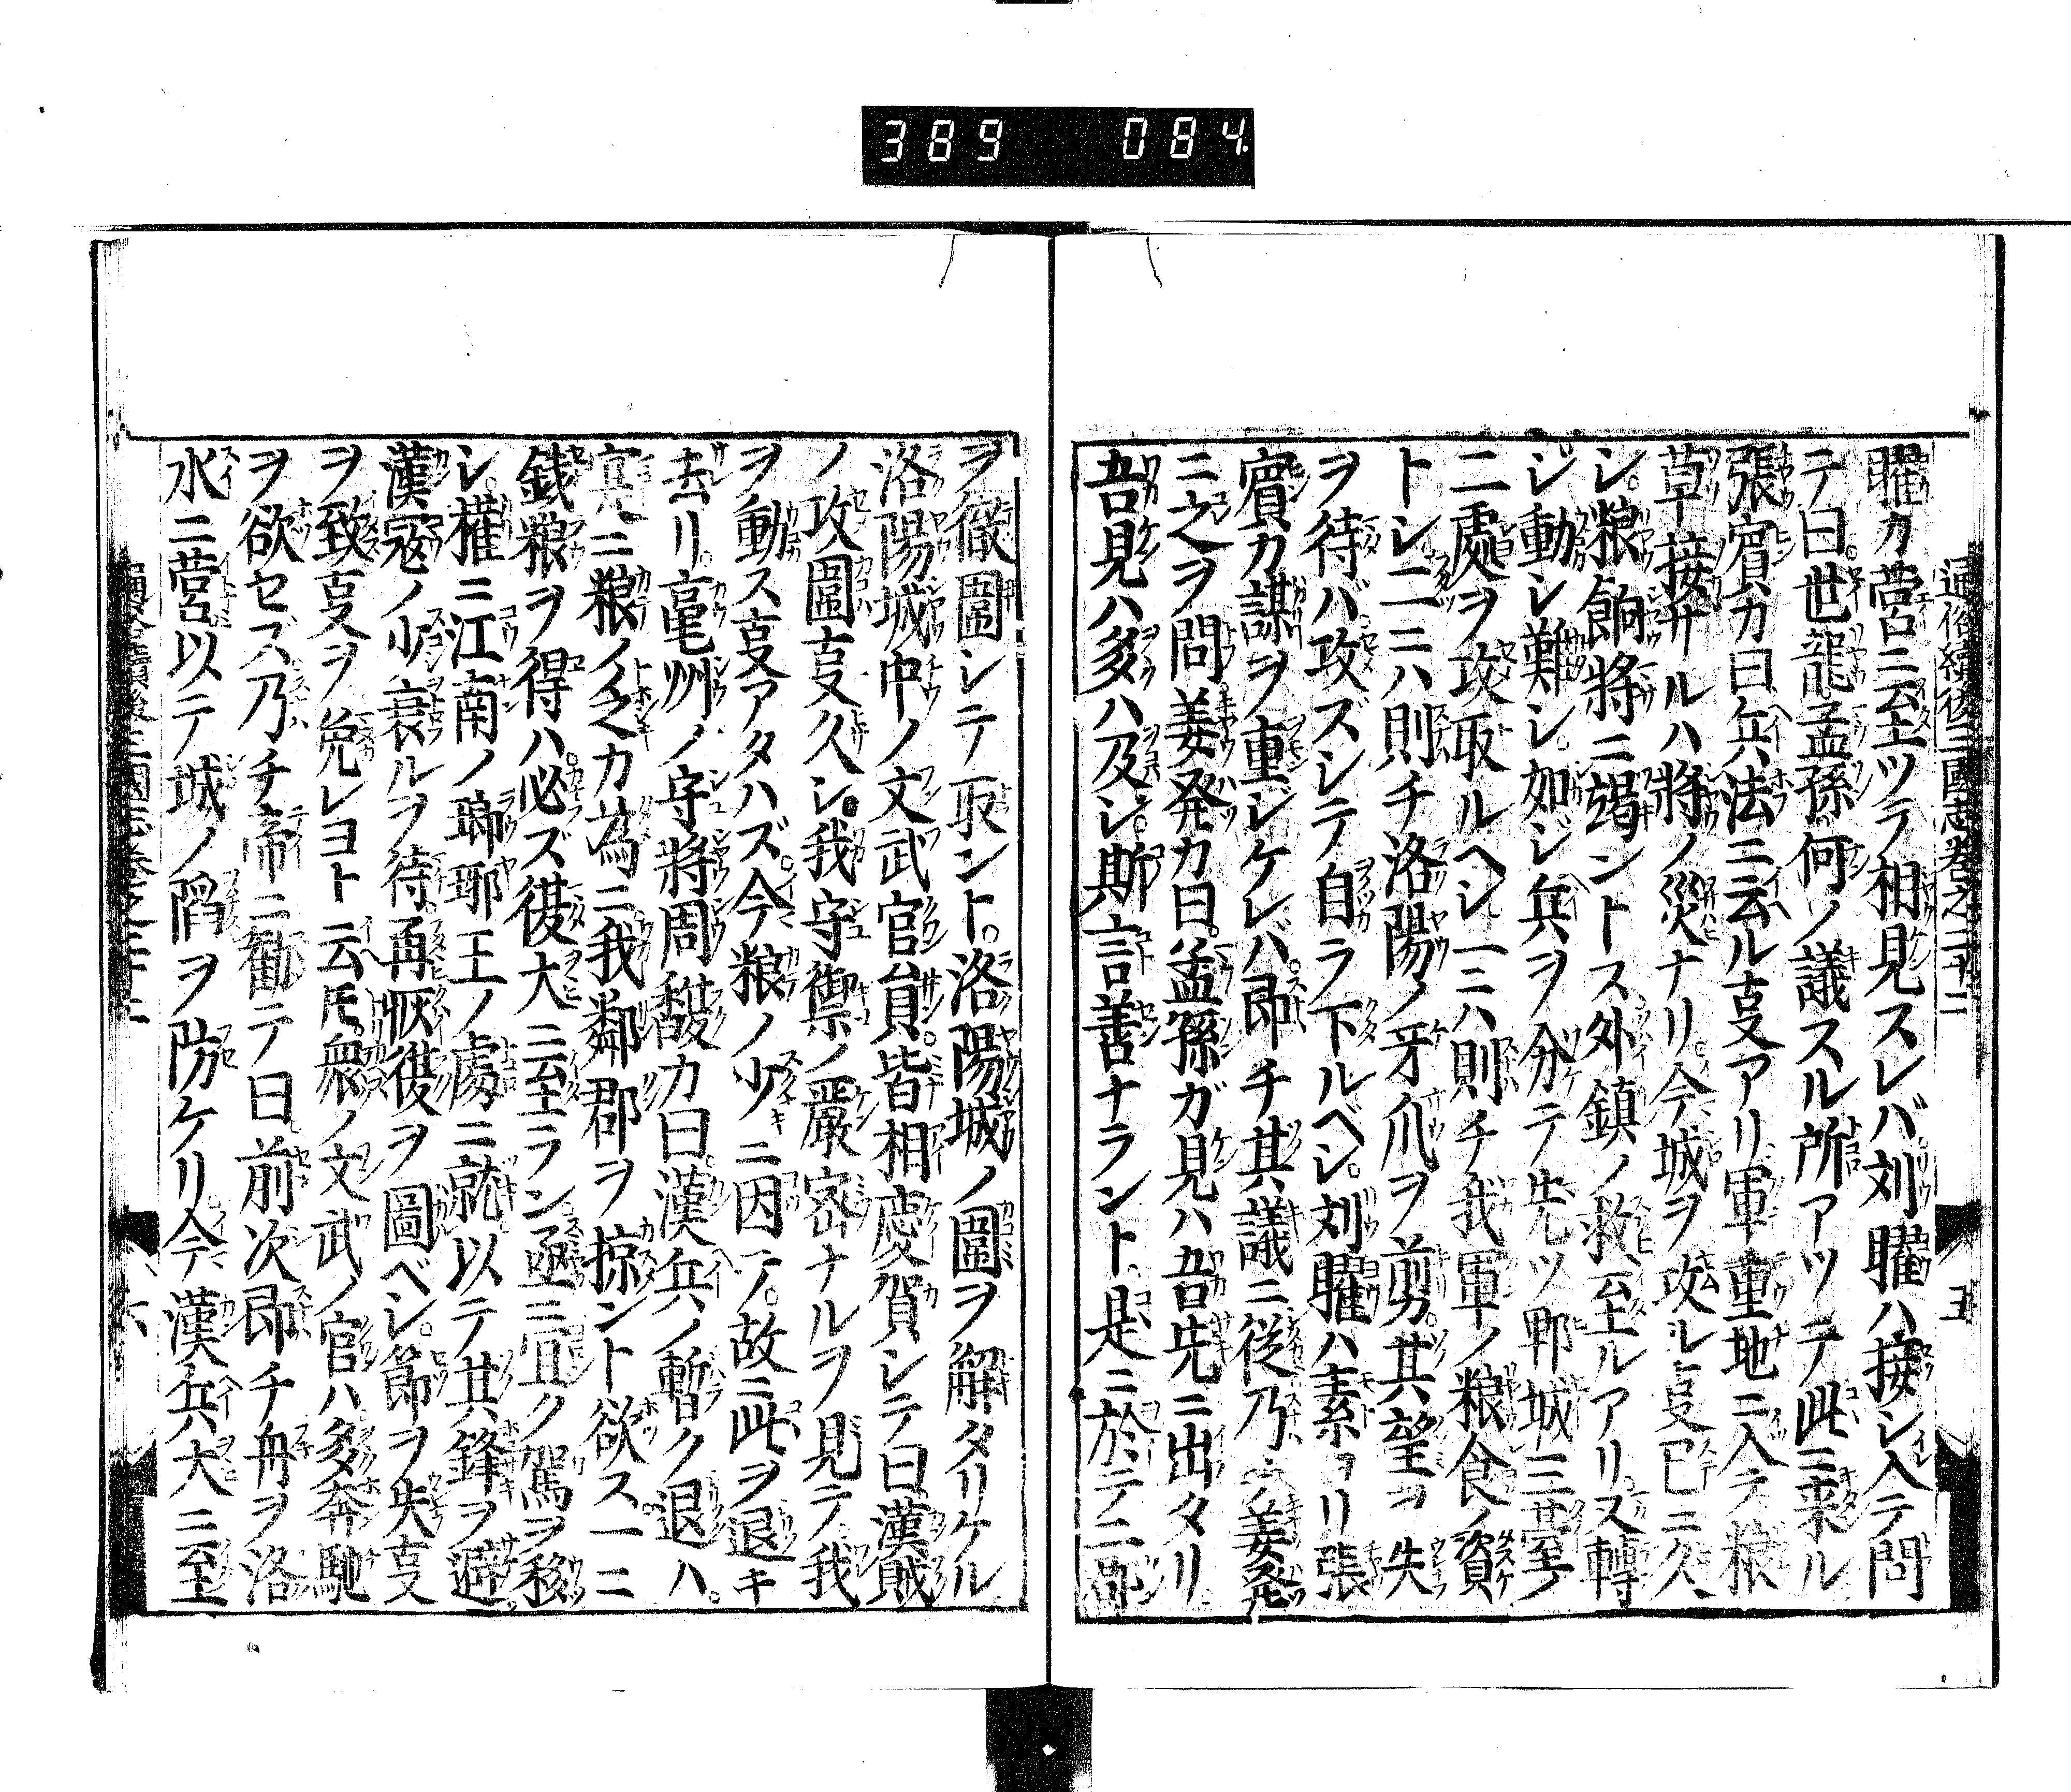 389 084
通俗續後三國志巻之二十二
五
曜カ営ニ至ツラ相見スレバ刘曜ハ接シ入テ問
テ曰世龍孟孫何ノ議スル所アツテ此ニ来ル
張賓カ曰兵法ニ云ル叓アリ軍重地ニ入テ粮
草接サルハ將ノ災ナリ今城ヲ攻ル叓已ニ久
シ粮餉將ニ竭ントス外鎮ノ救至ルアリ又轉
ジ動シ難シ如ジ兵ヲ分テ先ツ郫城三臺ノ
二處ヲ攻取ルヘシ一ニハ則チ我軍ノ粮食ノ資
トシ二ニハ則チ洛陽ノ牙爪ヲ剪其望ヲ失
ヲ待バ攻ズシテ自ラ下ルベシ刘曜ハ素ヨリ張
賓カ謀ヲ重ジケレバ即チ其議ニ従乃チ姜発
ニ之ヲ問姜発カ曰孟孫ガ見ハ吾先ニ出タリ
吾見ハ多ハ及シ斯言善ナラント是ニ於テ二部
ヲ徹圍シテ取ント洛陽城ノ圍ヲ解タリケル
洛陽城中ノ文武官員皆相慶賀シテ曰漢賊
ノ攻圍叓久シ我守禦ノ嚴密ナルヲ見テ我
ヲ動ス叓アタハズ今粮ノ少ニ因テ故ニ此ヲ退キ
去リ亳州ノ守將周馥カ曰漢兵ノ暫ク退ハ
真ニ粮ノ乏カ為ニ我鄰郡ヲ掠ント欲ス一ニ
錢粮ヲ得ハ必ズ復大ニ至ラン亟ニ宜ク駕ヲ移
シ權ニ江南ノ瑯琊王ノ處ニ就以テ其鋒ヲ避
漢寇ノ少衰ルヲ待再恢復ヲ圖ベシ節ヲ失叓
ヲ致叓ヲ免レヨト云𪜈衆ノ文武ノ官ハ多奔馳
ヲ欲セズ乃チ帝ニ勸テ曰前次即チ舟ヲ洛
水ニ営以テ城ノ陷ヲ防ケリ今漢兵大ニ至
六